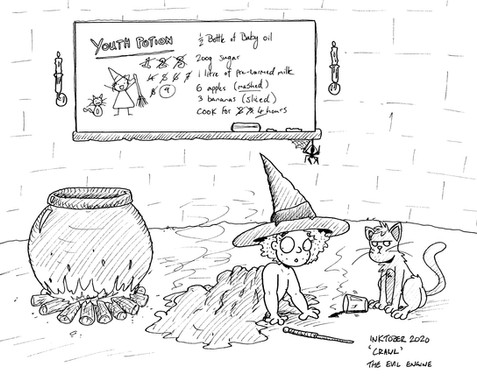 YOUTH POTION
½ Bottle of Baby oil
200g sugar
1 litre of pre-warmed milk
6 apples (mashed)
3 bananas (sliced)
COOK FOR 6 hours
9
INKTOBER 2020
'CRAWL'
THE EVIL ENGINE